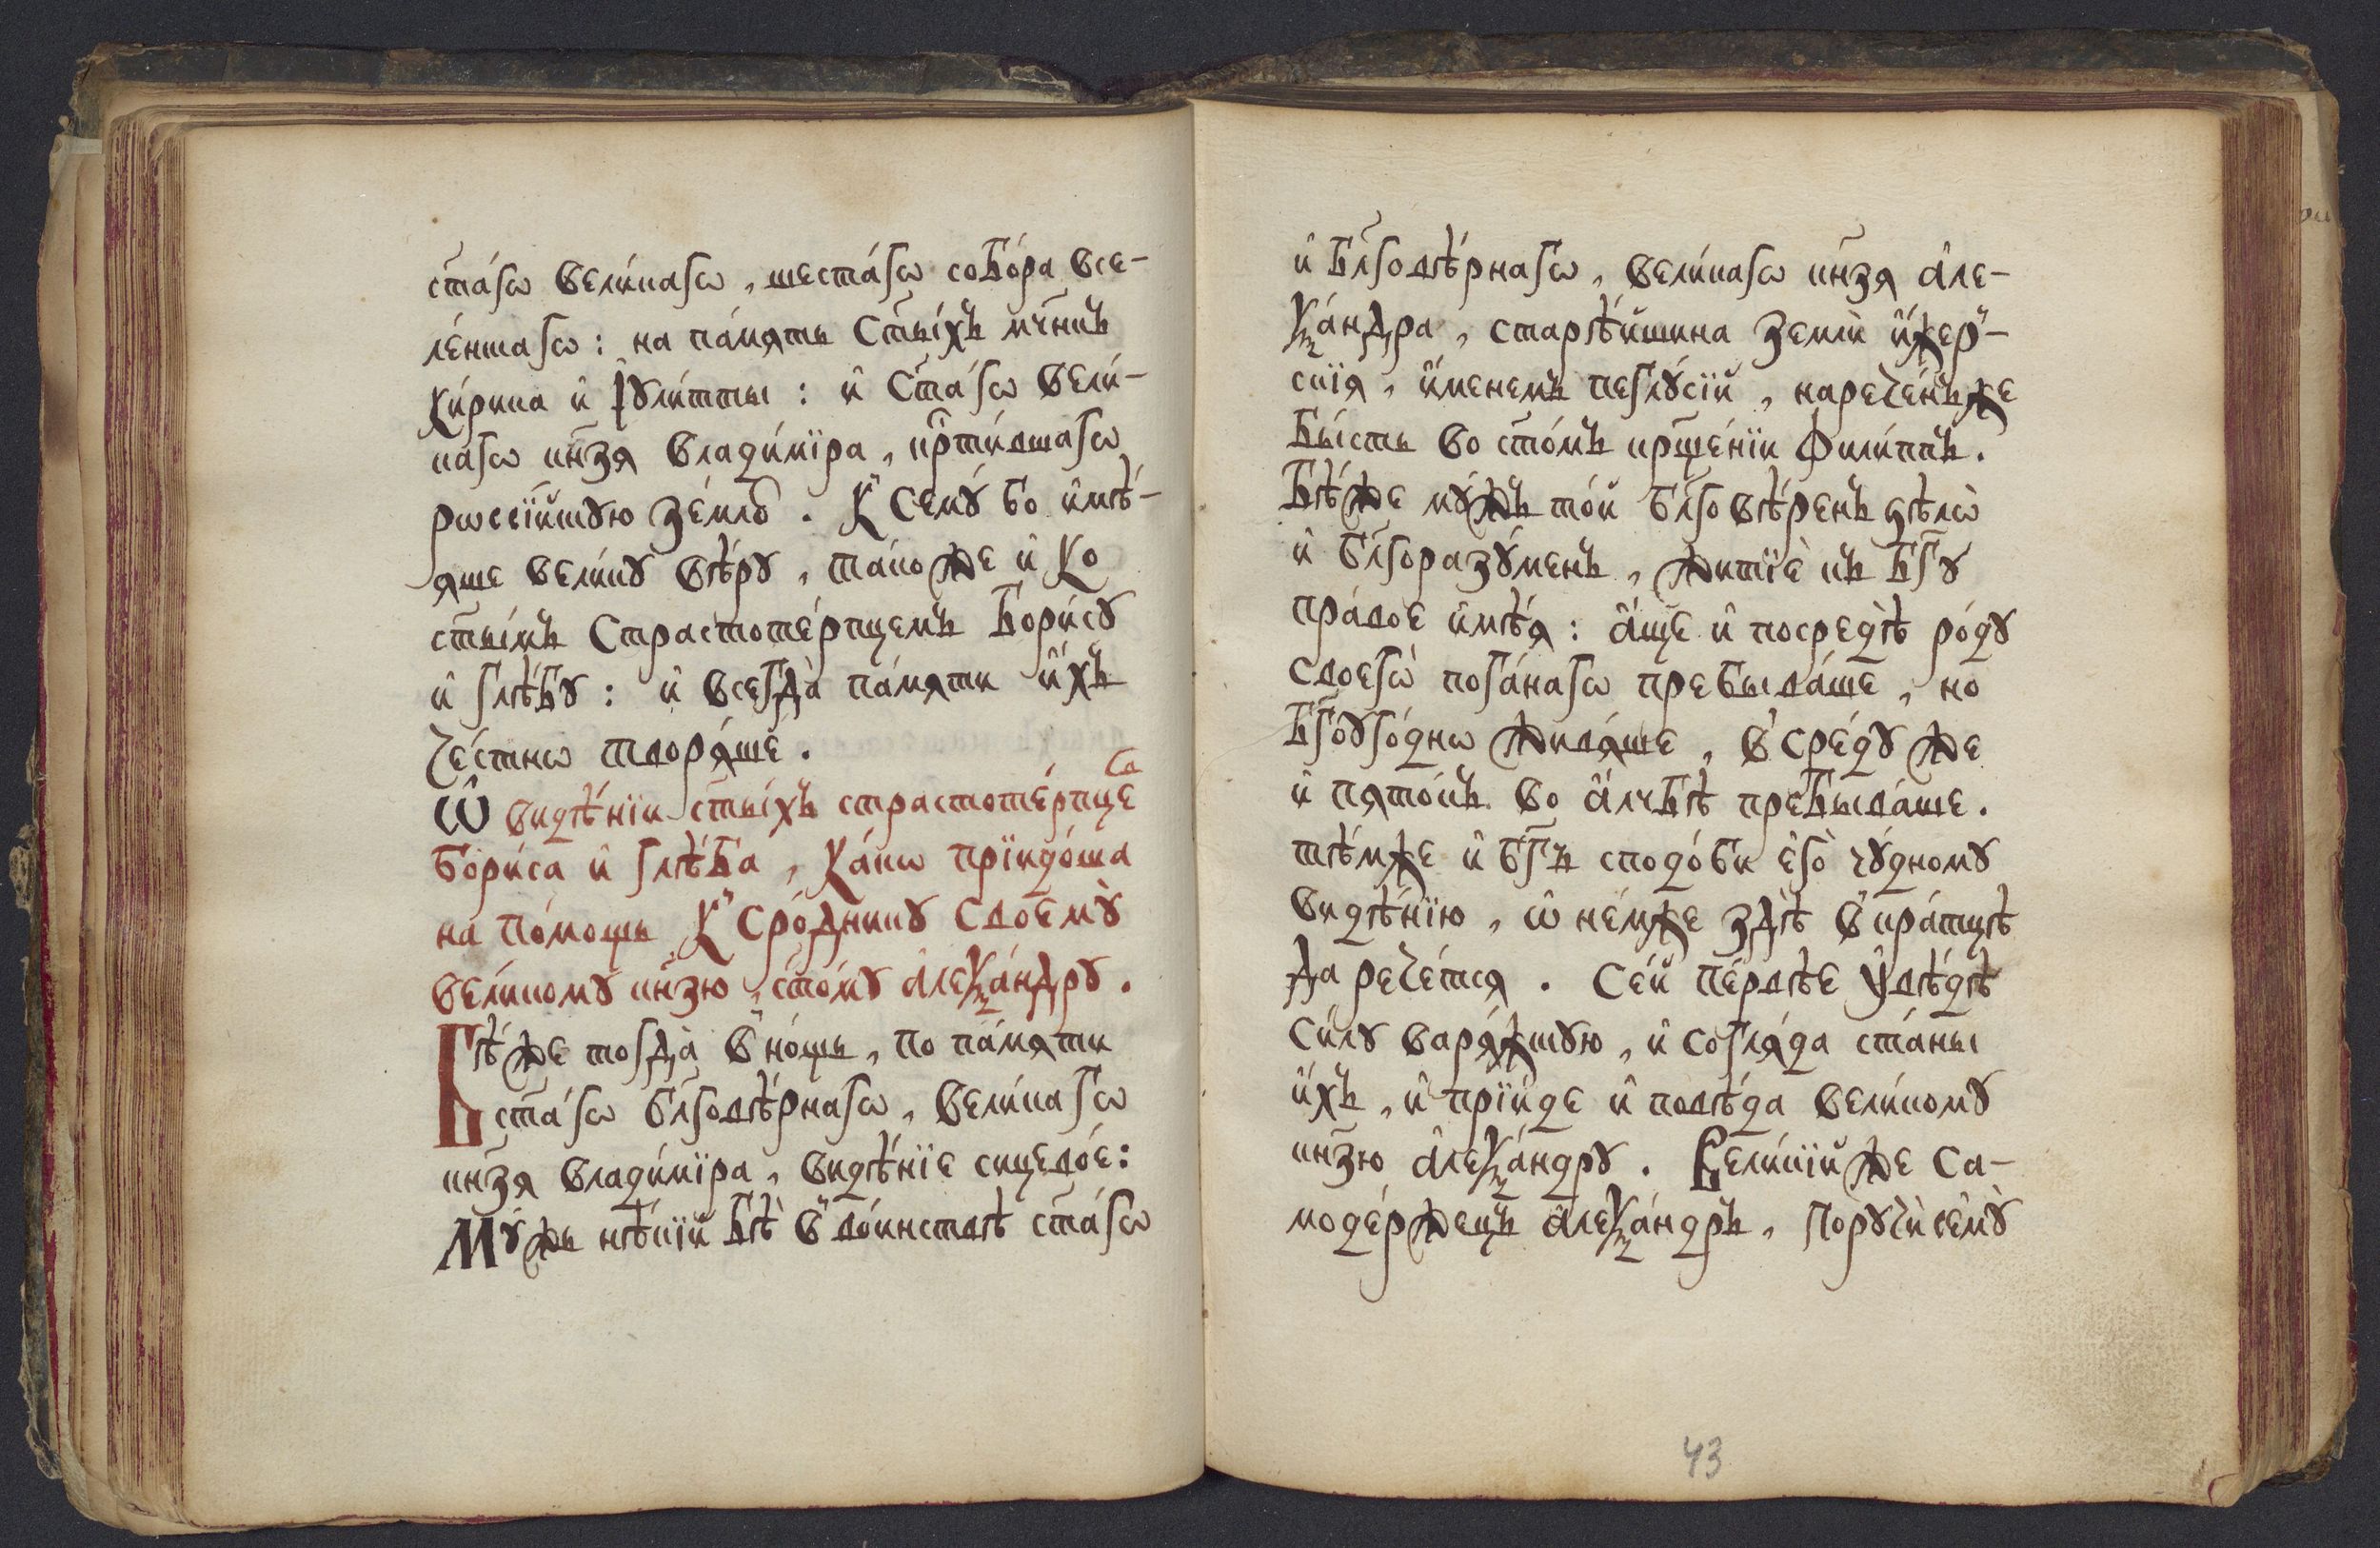 ст҃а́гѡ вели́кагѡ, шеста́гѡ собо́ра все-
ле́нскагѡ: на па́мять ст҃ы́хъ мч҃нкъ
ки́рика и҆ і҆ꙋли́тты: и҆ ст҃а́гѡ вели́-
кагѡ кн҃зя влади́мїра, кр҃ти́вшагѡ
рѡссі́йскꙋю зе́млю. к̾ семꙋ́ бо и҆мѣ́-
яше вели́кꙋ вѣ́рꙋ, та́кожде и҆ ко
ст҃ы́мъ страстоте́рпцемъ бори́сꙋ
и҆ глѣ́бꙋ: и҆ всегда̀ па́мяти и҆́хъ
че́стнѡ творя́ше.
Ѽ видѣ́нїи ст҃ы́хъ страстоте́рпцевъ
бори́са и҆ глѣ́ба, ка́кѡ прїидо́ша
на по́мощь к̾ сро́дникꙋ своемꙋ̀
вели́комꙋ кн҃зю, ст҃о́мꙋ а҆леѯа́ндрꙋ.
Бѣ́же тогда̀ в̾ но́щь, по па́мяти
ст҃а́гѡ бл҃говѣ́рнагѡ, вели́кагѡ
кн҃зя влади́мїра, видѣ́нїе сицево́е:
Мꙋ́жъ нѣ́кїй бѣ̀ в̾ во́инствѣ ст҃а́гѡ
и҆ бл҃говѣ́рнагѡ, вели́кагѡ кн҃зя а҆ле-
ѯа́ндра, старѣ́йшина землѝ и҆́жер̾-
скїя, и҆́менемъ пелгꙋ́сїй, нарече́нъже
бы́сть во ст҃о́мъ крщ҃е́нїи фили́ппъ.
Бѣ́же мꙋ́жъ то́й бл҃говѣ́ренъ ѕѣлѡ̀
и҆ бл҃горазꙋ́менъ, житїѐ къ бг҃ꙋ
пра́вое и҆мѣ́я: а҆́ще и҆ посредѣ̀ ро́дꙋ
своегѡ̀ пога́нагѡ пребыва́ше, но
бг҃оꙋго́днѡ живя́ше, в̾ сре́дꙋ же
и҆ пято́къ во а҆́лчбѣ пребыва́ше.
тѣ́мже и҆ бг҃ъ сподо́би є҆го̀ чꙋ́дномꙋ
видѣ́нїю, ѽ не́мже здѣ̀ в̾ кра́тцѣ
да рече́тся. Се́й пе́рвѣе ᲂу҆вѣ́дѣ
си́лꙋ варя́жскꙋю, и҆ согля́да ста́ны
и҆́хъ, и҆ прїи́де и҆ повѣ́да вели́комꙋ
кн҃зю а҆леѯа́ндрꙋ. Вели́кїй же са-
моде́ржецъ а҆леѯа́ндръ, порꙋчѝ семꙋ̀
43